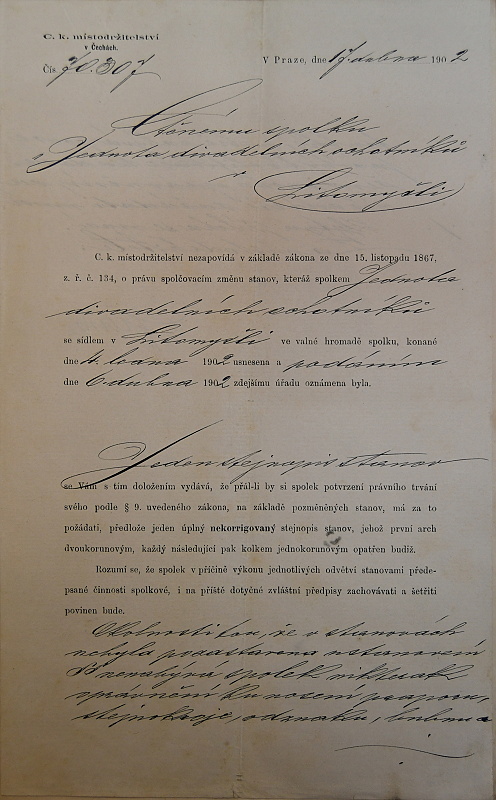 C. k. místodržitelství
v Čechách.
Čís. 70.307
V Praze, dne 17. dubna 1902
Ctěnému spolku
"Jednota divadelních ochotníků"
v
Litomyšli
C. k. místodržitelství nezapovídá v základě zákona ze dne 15. listopadu 1867,
z. ř. č. 134, o právu spolčovacím změnu stanov, kteráž spolkem Jednota
divadelních ochotníků
se sídlem v Litomyšli ve valné hromadě spolku, konané
dne 4. února 1902 usnesena a podáním
dne 6. dubna 1902 zdejšímu úřadu oznámena byla.
Jeden stejnopis stanov
se Vám s tím doložením vydává, že přál-li by si spolek potvrzení právního trvání
svého podle § 9. uvedeného zákona, na základě pozměněných stanov, má za to
požádati, předlože jeden úplný nekorrigovaný stejnopis stanov, jehož první arch
dvoukorunovým, každý následující pak kolkem jednokorunovým opatřen budiž.
Rozumí se, že spolek v příčině výkonu jednotlivých odvětví stanovami přede-
psané činnosti spolkové, i na příště dotyčné zvláštní předpisy zachovávati a šetřiti
povinen bude.
Okolností tou, že v stanovách
nebyla pozastavena ustanovení
nenabývá spolek nikterak
oprávnění ku nošení praporu,
stejnokroje, odznaku, bubnu a